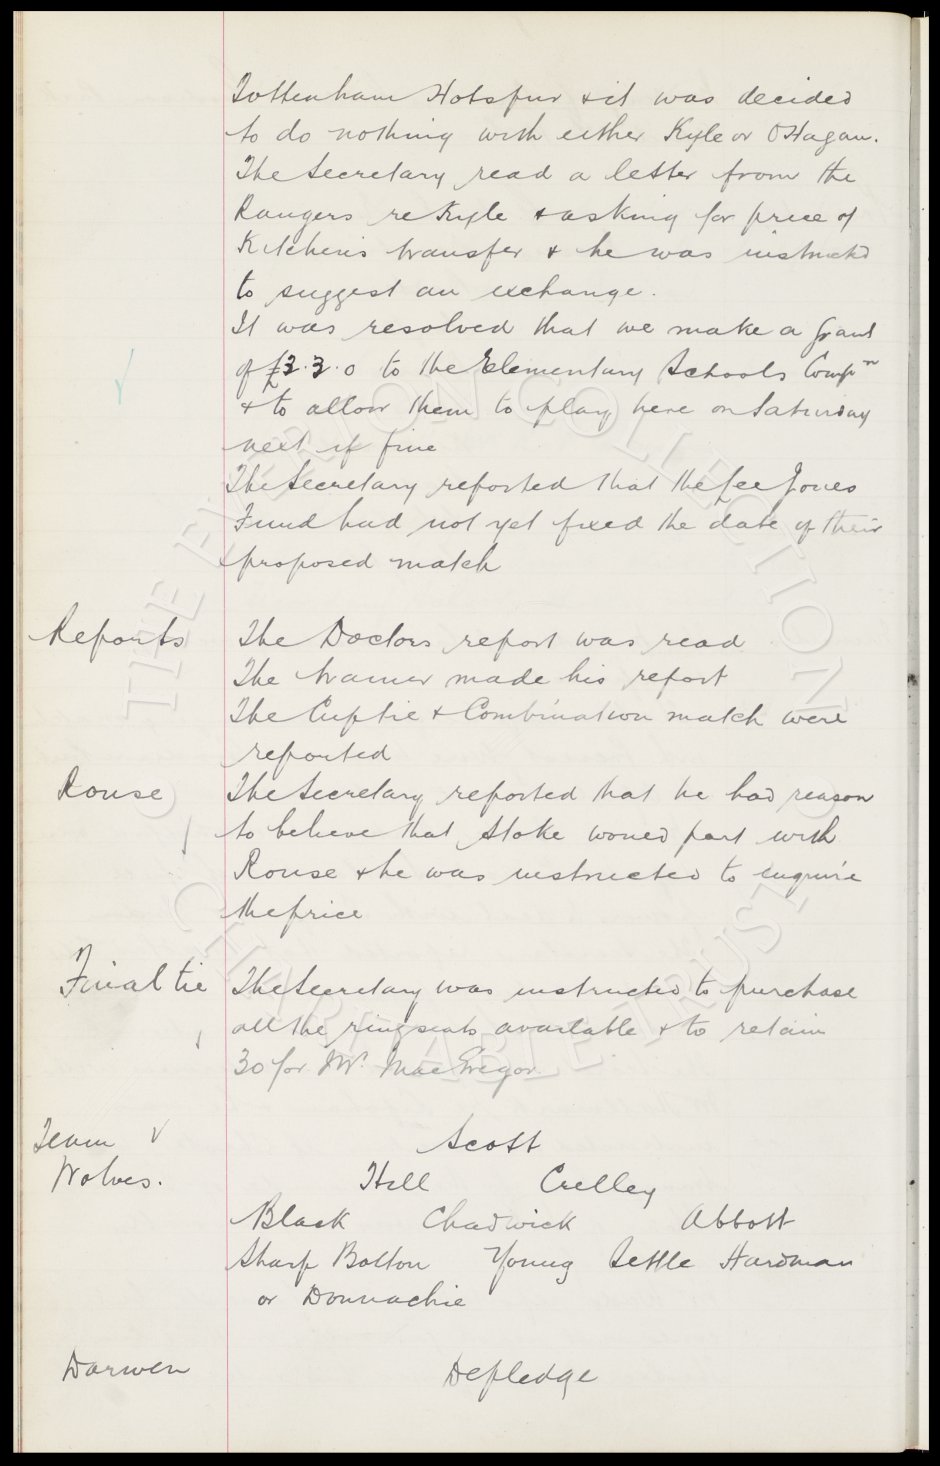 Tottenham Hotspur & it was decided
to do nothing with either Kyle or O'Hagan.
The Secretary read a letter from the
Rangers re Kyle & asking for price of
Kitchen's transfer & he was instructed
to suggest an exchange.
It was resolved that we make a grant
of £3.3.0 to the Elementary Schools Compn
& to allow them to play here on Saturday
next if fine
The Secretary reported that the Lee Jones
Fund had not yet fixed the date of their
proposed match
Reports The Doctors report was read
The trainer made his report
The Cuptie & Combination match were
reported
Rouse The Secretary reported that he had reason
to believe that Stoke would part with
Rouse & he was instructed to enquire
the price
Final tie The Secretary was instructed to purchase
all the ring seats available & to retain
30 for Mr. MacGregor.
Team V Scott
Wolves. Hill Crelley
Black Chadwick Abbott
Sharp Bolton Young Settle Hardman
or Donnachie
Darwen Depledge
THE EVERTON COLLECTION
CHARITABLE TRUST